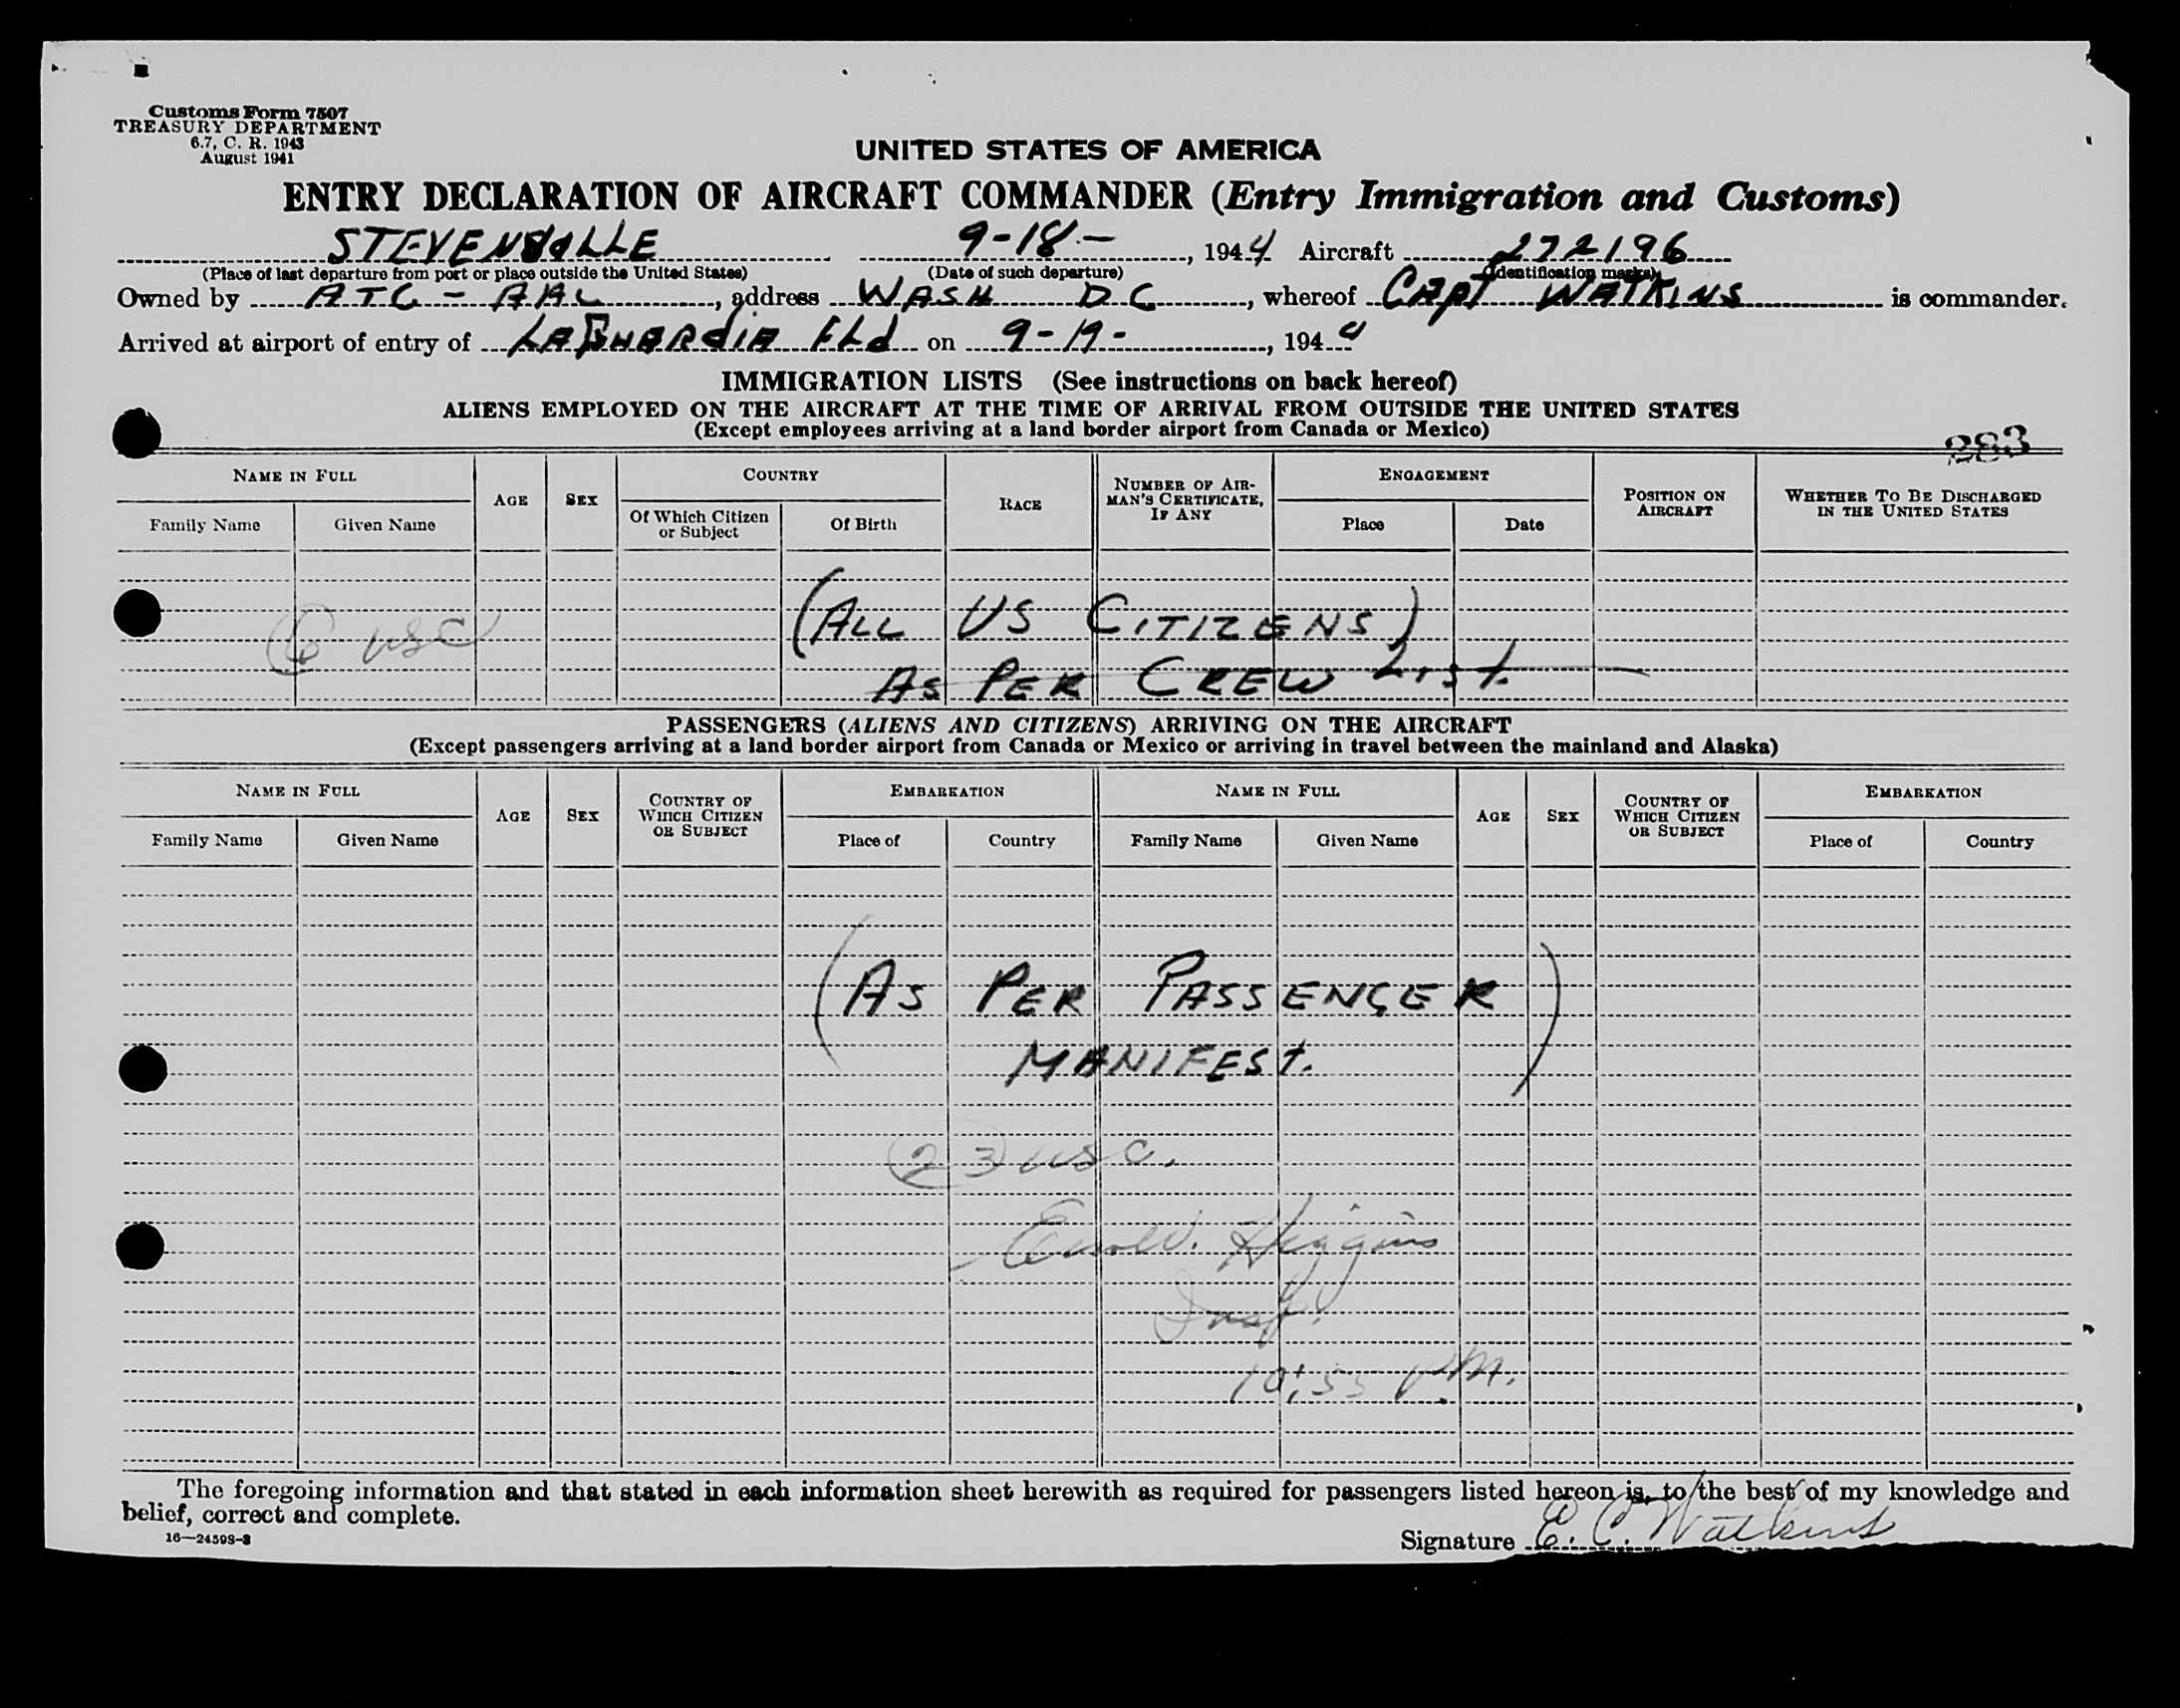 Customs Form 7507
TREASURY DEPARTMENT
6.7, C. R. 1943
August 1941
UNITED STATES OF AMERICA
ENTRY DECLARATION OF AIRCRAFT COMMANDER (Entry Immigration and Customs)
9-18-, 1944 Aircraft 272196
(Place of last departure from port or place outside the United States) (Date of such departure) (Identification marks)
Owned by ATC - AAL, address WASH DC, whereof CAPT WATKINS is commander.
Arrived at airport of entry of LAGUARDIA FLd on 9-19-, 1944
IMMIGRATION LISTS (See instructions on back hereof)
ALIENS EMPLOYED ON THE AIRCRAFT AT THE TIME OF ARRIVAL FROM OUTSIDE THE UNITED STATES
(Except employees arriving at a land border airport from Canada or Mexico)
283
NAME IN FULL AGE SEX COUNTRY RACE NUMBER OF AIRMAN'S CERTIFICATE, IF ANY ENGAGEMENT POSITION ON AIRCRAFT WHETHER TO BE DISCHARGED IN THE UNITED STATES
Family Name Given Name Of Which Citizen or Subject Of Birth Place Date
(ALL US CITIZENS)
6 USC
AS PER CREW List.
PASSENGERS (ALIENS AND CITIZENS) ARRIVING ON THE AIRCRAFT
(Except passengers arriving at a land border airport from Canada or Mexico or arriving in travel between the mainland and Alaska)
NAME IN FULL AGE SEX COUNTRY OF WHICH CITIZEN OR SUBJECT EMBARKATION NAME IN FULL AGE SEX COUNTRY OF WHICH CITIZEN OR SUBJECT EMBARKATION
Family Name Given Name Place of Country Family Name Given Name Place of Country
(AS PER PASSENGER
MANIFEST.)
23 USC.
Higgins
Insp.
10:55 P.M.
The foregoing information and that stated in each information sheet herewith as required for passengers listed hereon is, to the best of my knowledge and
belief, correct and complete.
16—24598-3
Signature E. C. Watkins